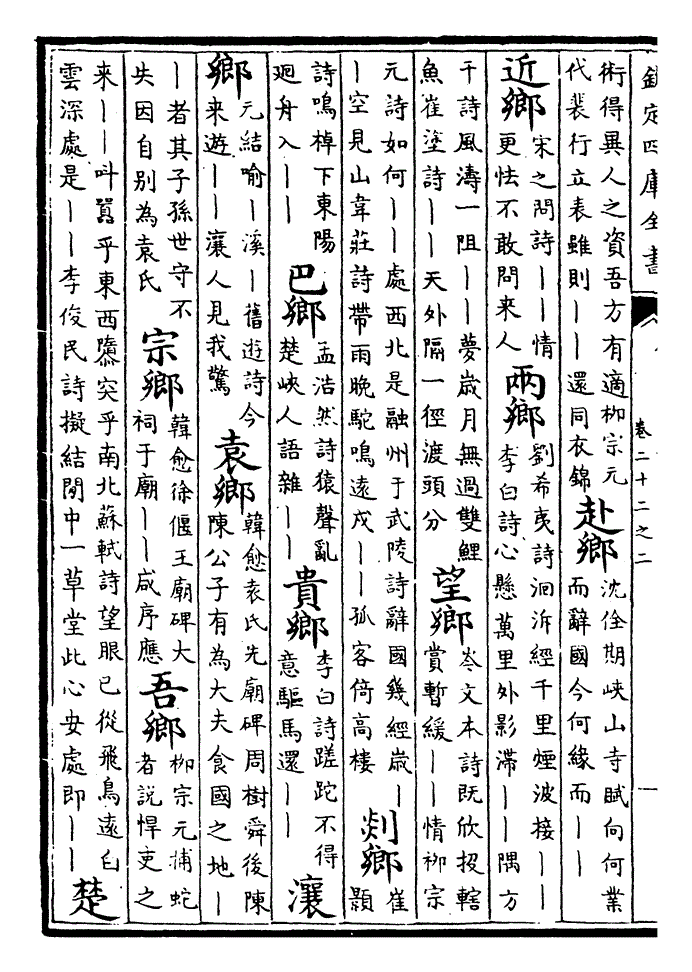 欽定四庫全書
卷二十二之二
術得異人之資吾方有適柳宗元
代裴行立表雖則丨丨還同衣錦
赴鄉
沈佺期峽山寺賦向何業
而辭國今何緣而丨丨
近鄉
宋之問詩丨丨情
更怯不敢問來人
兩鄉
劉希夷詩洄泝經千里煙波接丨丨
李白詩心懸萬里外影滯丨丨隅方
干詩風濤一阻丨丨夢歲月無過雙鯉
魚崔塗詩丨丨天外隔一徑渡頭分
望鄉
岑文本詩既欣投轄
賞暫緩丨丨情柳宗
元詩如何丨丨處西北是融州于武陵詩辭國幾經歲丨
丨空見山韋莊詩帶雨晚駝鳴遠戍丨丨孤客倚高樓
剡鄉
崔
顥
詩鳴棹下東陽
迴舟入丨丨
巴鄉
孟浩然詩猿聲亂
楚峽人語雜丨丨
貴鄉
李白詩蹉跎不得
意驅馬還丨丨
瀼
鄉
元結喻丨溪丨舊遊詩今
來遊丨丨瀼人見我驚
袁鄉
韓愈袁氏先廟碑周樹舜後陳
陳公子有為大夫食國之地丨
丨者其子孫世守不
失因自别為袁氏
宗鄉
韓愈徐偃王廟碑大
祠于廟丨丨咸序應
吾鄉
柳宗元捕蛇
者說悍吏之
來丨丨叫囂乎東西隳突乎南北蘇軾詩望眼已從飛鳥遠白
雲深處是丨丨李俊民詩擬結閒中一草堂此心安處即丨丨
楚